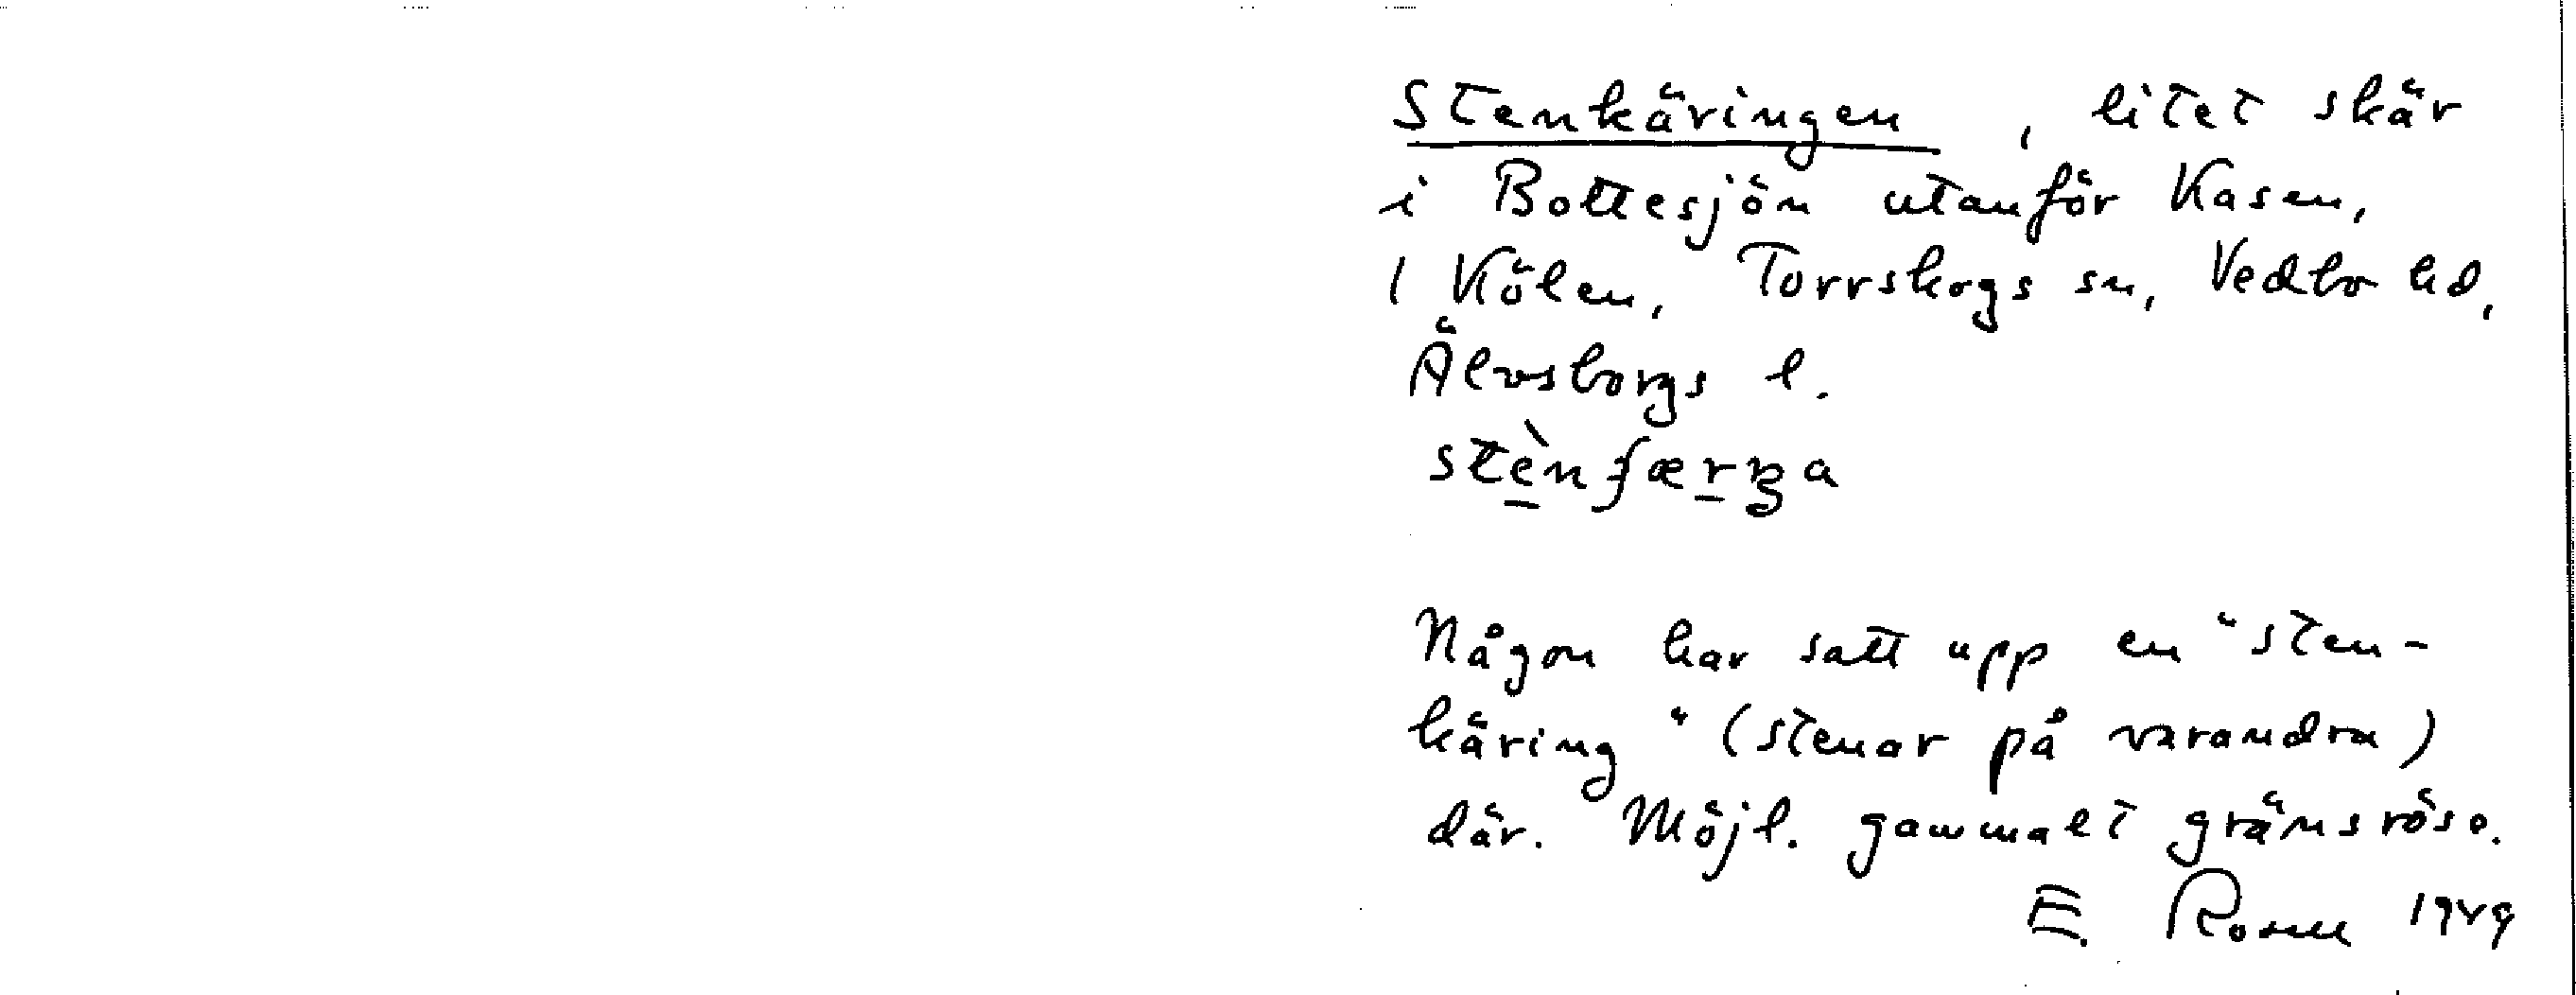 Stenkäringen, litet skär
i Bottesjön utanför Kasen,
1 Kölen, Torrskogs sn, Vedbo hd,
Älvsborgs l.
Någon har satt upp en "sten-
käring" (stenar på varandra)
där. Möjl. gammalt gränsröse.
E. 1949